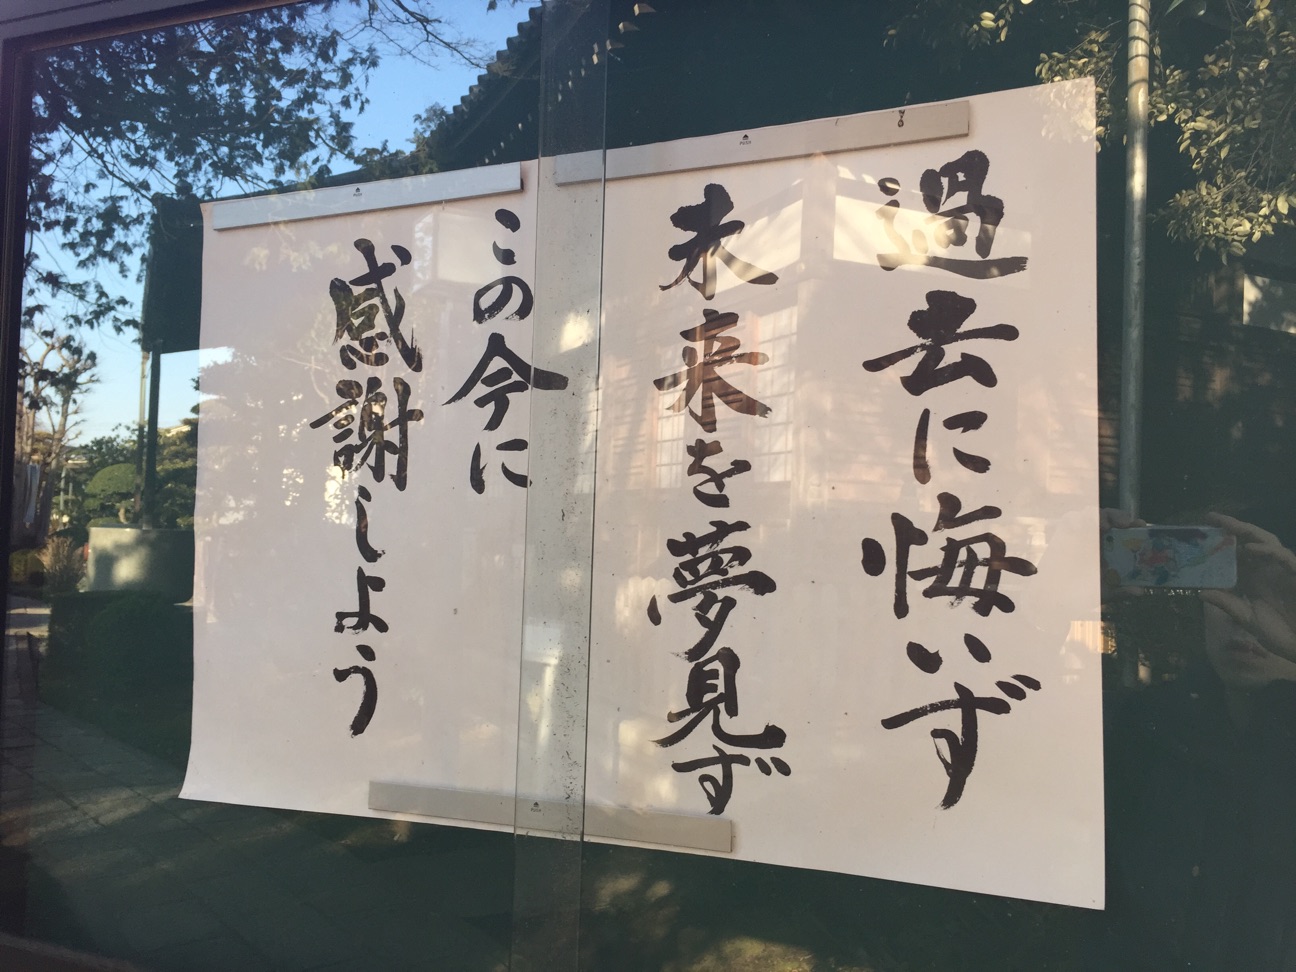 過去に悔いず
未来を夢見ず
この今に
感謝しよう